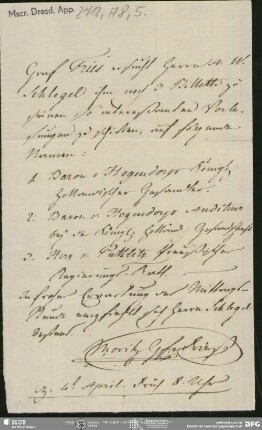 Mscr. Dresd. App. 2712, A8, 5.
Graf Fries ersucht Herrn A. W.
Schlegel ihm noch 3 Billette zu
seinen so interessanten Vorle-
sungen zu schicken, auf folgende
Namen:
1. Baron v Hogendorp Königl
Holländischer Gesandter.
2. Baron v Hogendorp Auditeur
bey der Königl Holländ. Gesandtschaft
3. Herr v Puttlitz Preussischer
Regierungs Rath
In froher Erwartung der Mittags-
Stunde empfiehlt sich Herrn Schlegel
bestens
Moritz Fries
4t April. Früh 8. Uhr
SLUB
DFG